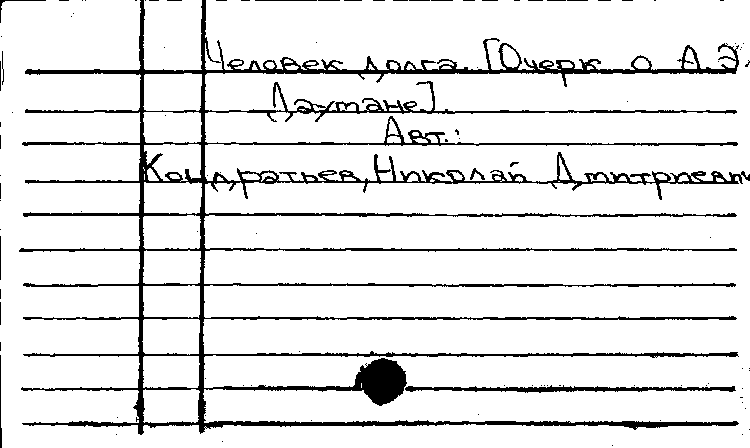 Человек долга. [Очерк о А.Э.
Даумане].
Авт.:
Кондратьев, Николай Дмитриевич